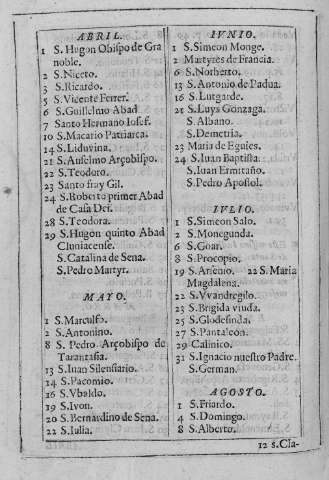 ABRIL.
1 S. Hugon Obispo de Gra
noble.
2 S. Niceto.
3 S. Ricardo.
5 S. Vicente Ferrer.
6 S. Guillelmo Abad
7 Santo Hermano Iosef.
10 S. Macario Patriarca.
14 S. Liduvina.
21 S. Anselmo Arçobispo.
22 S. Teodoro.
23 Santo fray Gil.
24 S. Roberto primer Abad
de Casa Dei.
28 S. Teodora.
29 S. Hugon quinto Abad
Cluniacense.
S. Catalina de Sena.
S. Pedro Martyr.
MAYO.
1 S. Marculfo.
2 S. Antonino.
8 S. Pedro Arçobispo de
Tarantasia.
13 S. Iuan Silensiario.
14 S. Pacomio.
16 S. Vbaldo.
19 S. Ivon.
20 S. Bernardino de Sena.
22 S. Iulia.
IVNIO.
1 S. Simeon Monge.
2 Martyres de Francia.
6 S. Norberto.
13 S. Antonio de Padua.
16 S. Lutgarde.
21 S. Luys Gonzaga.
S. Albano.
S. Demetria.
23 Maria de Egnies.
24 S. Iuan Baptista.
S. Iuan Ermitaño.
S. Pedro Apostol.
IVLIO.
1 S. Simeon Salo.
2 S. Monegunda.
6 S. Goar.
8 S. Procopio.
19 S. Arsenio. 22 S. Maria
Magdalena.
22 S. Vvandregilo.
23 S. Brigida viuda.
25 S. Glodesinda.
27 S. Pantaleon.
29 Calinico.
31 S. Ignacio nuestro Padre.
S. German.
AGOSTO.
1 S. Friardo.
4 S. Domingo.
8 S. Alberto.
12 S. Cla-